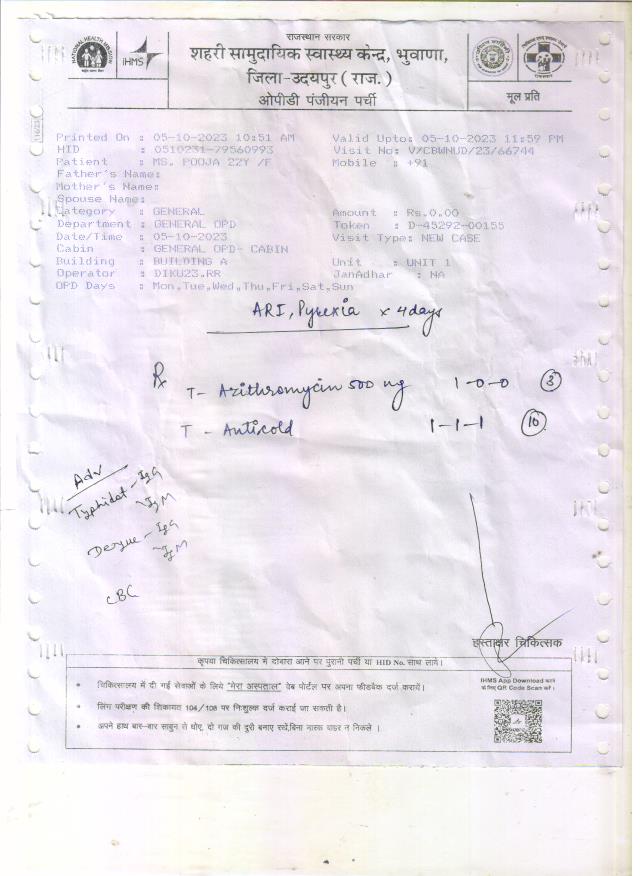 राजस्थान सरकार
शहरी सामुदायिक स्वास्थ्य केन्द्र, भुवाणा,
जिला-उदयपुर ( राज. )
ओपीडी पंजीयन पर्ची
NATIONAL HEALTH MISSION
iHMS
मूल प्रति
Printed On : 05-10-2023 10:51 AM Valid Upto: 05-10-2023 11:59 PM
HID : 0510231-79560993 Visit No: V/CBWNUD/23/66744
Patient : MS. POOJA 22Y /F Mobile : +91
Father's Name:
Mother's Name:
Spouse Name:
Category : GENERAL Amount : Rs.0.00
Department : GENERAL OPD Token : D-45292-00155
Date/Time : 05-10-2023 Visit Type: NEW CASE
Cabin : GENERAL OPD- CABIN
Building : BUILDING A Unit : UNIT 1
Operator : DIKU23.RR JanAdhar : NA
OPD Days : Mon,Tue,Wed,Thu,Fri,Sat,Sun
ARI, Pyrexia x 4days
Rx
T- Azithromycin 500 mg 1-0-0 (3)
T - Anticold 1-1-1 (10)
Adv
Typhidot - IgG
- IgM
Dengue - IgG
- IgM
CBC
हस्ताक्षर चिकित्सक
कृपया चिकित्सालय मे दोबारा आने पर पुरानी पर्ची या HID No. साथ लायें।
• चिकित्सालय में दी गई सेवाओं के लिये "मेरा अस्पताल" वेब पोर्टल पर अपना फीडबैक दर्ज करायें।
• लिंग परीक्षण की शिकायत 104/108 पर निःशुल्क दर्ज कराई जा सकती है।
• अपने हाथ बार-बार साबुन से धोए, दो गज की दूरी बनाए रखें,बिना मास्क बाहर न निकले ।
IHMS App Download करने
के लिए QR Code Scan करें।